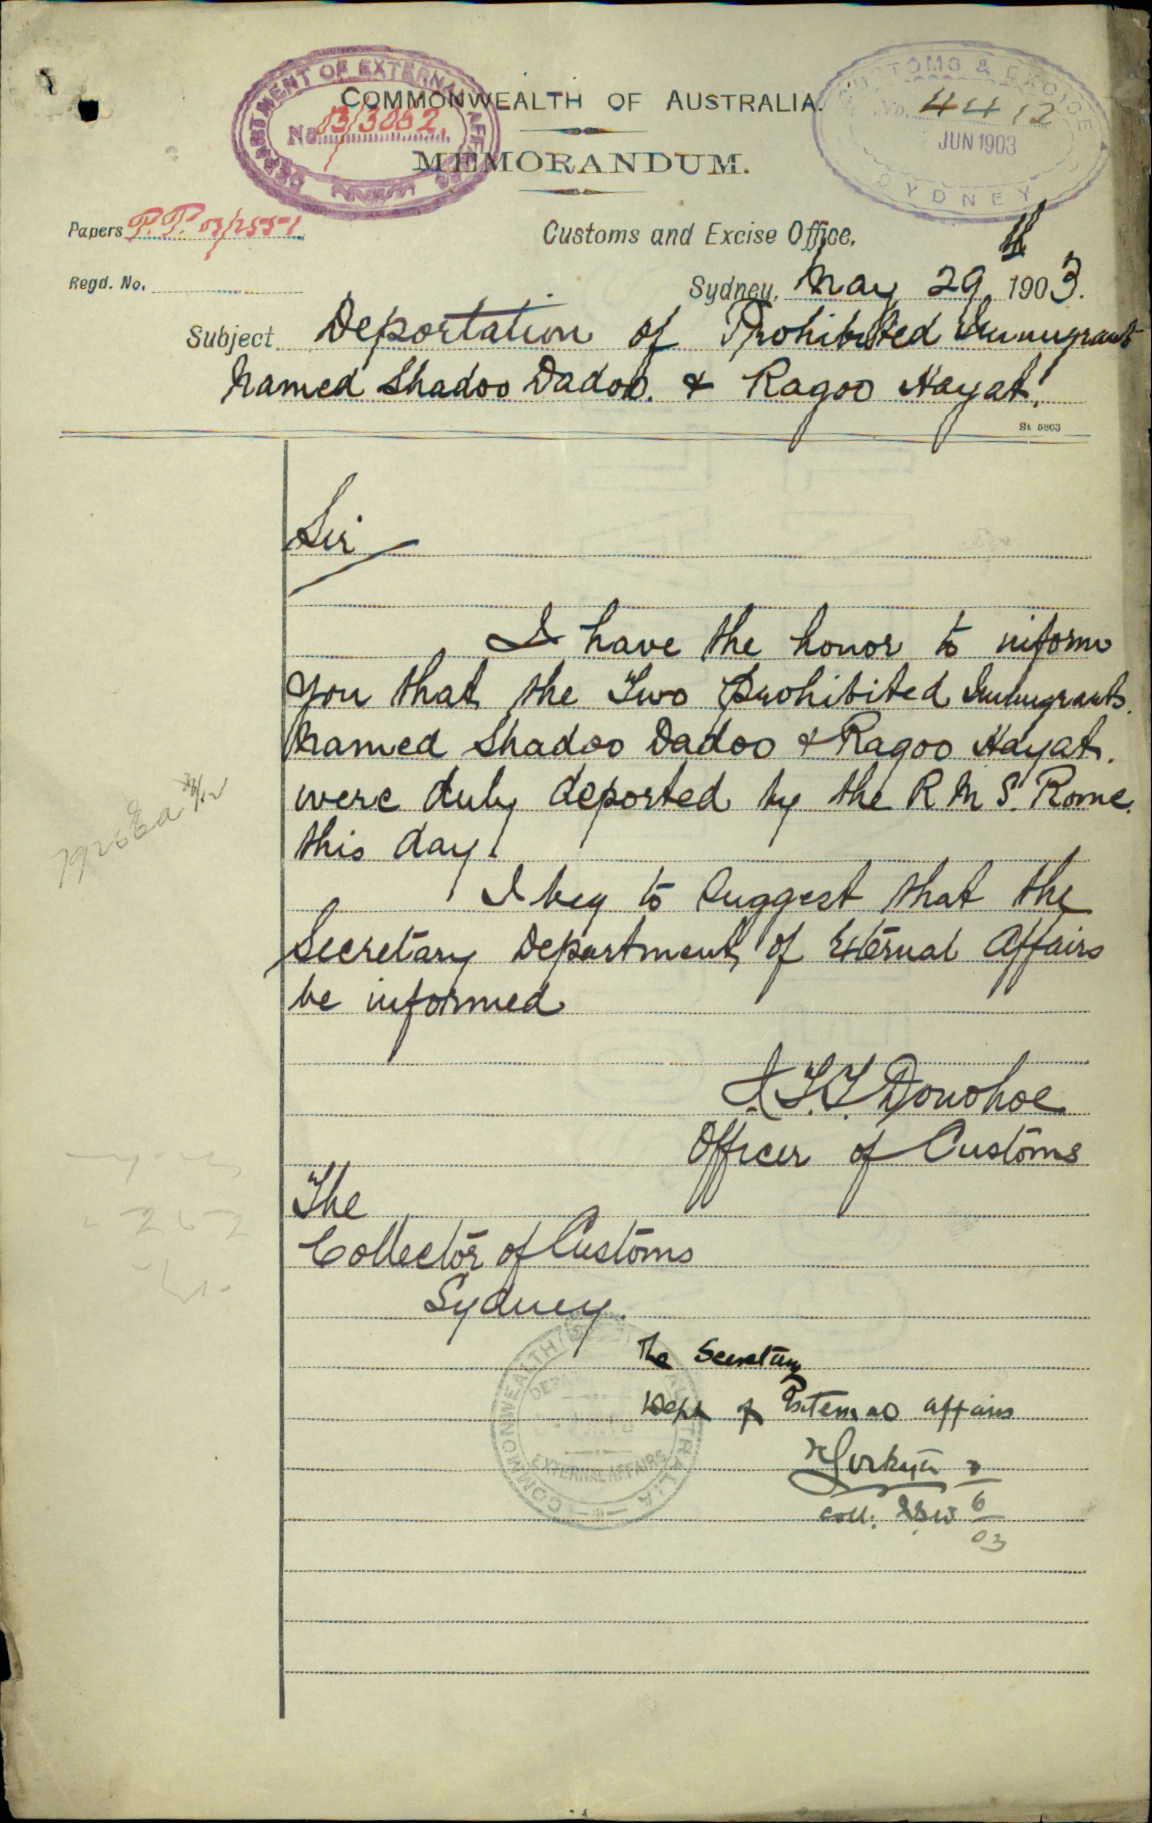 DEPARTMENT OF EXTERNAL AFFAIRS
No. 03/3062
CUSTOMS & EXCISE
No. 4412
JUN 1903
SYDNEY
COMMONWEALTH OF AUSTRALIA.
MEMORANDUM.
Papers P.P. 03/2551
Customs and Excise Office,
Regd. No.
Sydney, May 29 1903.
Subject Deportation of Prohibited Immigrant
Named Shadoo Dadoo. & Ragoo Hayat.
St. 5803
Sir
I have the honor to inform
you that the Two prohibited Immigrants.
Named Shadoo Dadoo & Ragoo Hayat.
were duly deported by the R M S. Rome.
this day.
I beg to suggest that the
Secretary Department of External Affairs
be informed
J.T.T. Donohoe
Officer of Customs
The
Collector of Customs
Sydney.
The Secretary
Dept of External affairs
coll. NSW
6
03
COMMONWEALTH AUSTRALIA
EXTERNAL AFFAIRS